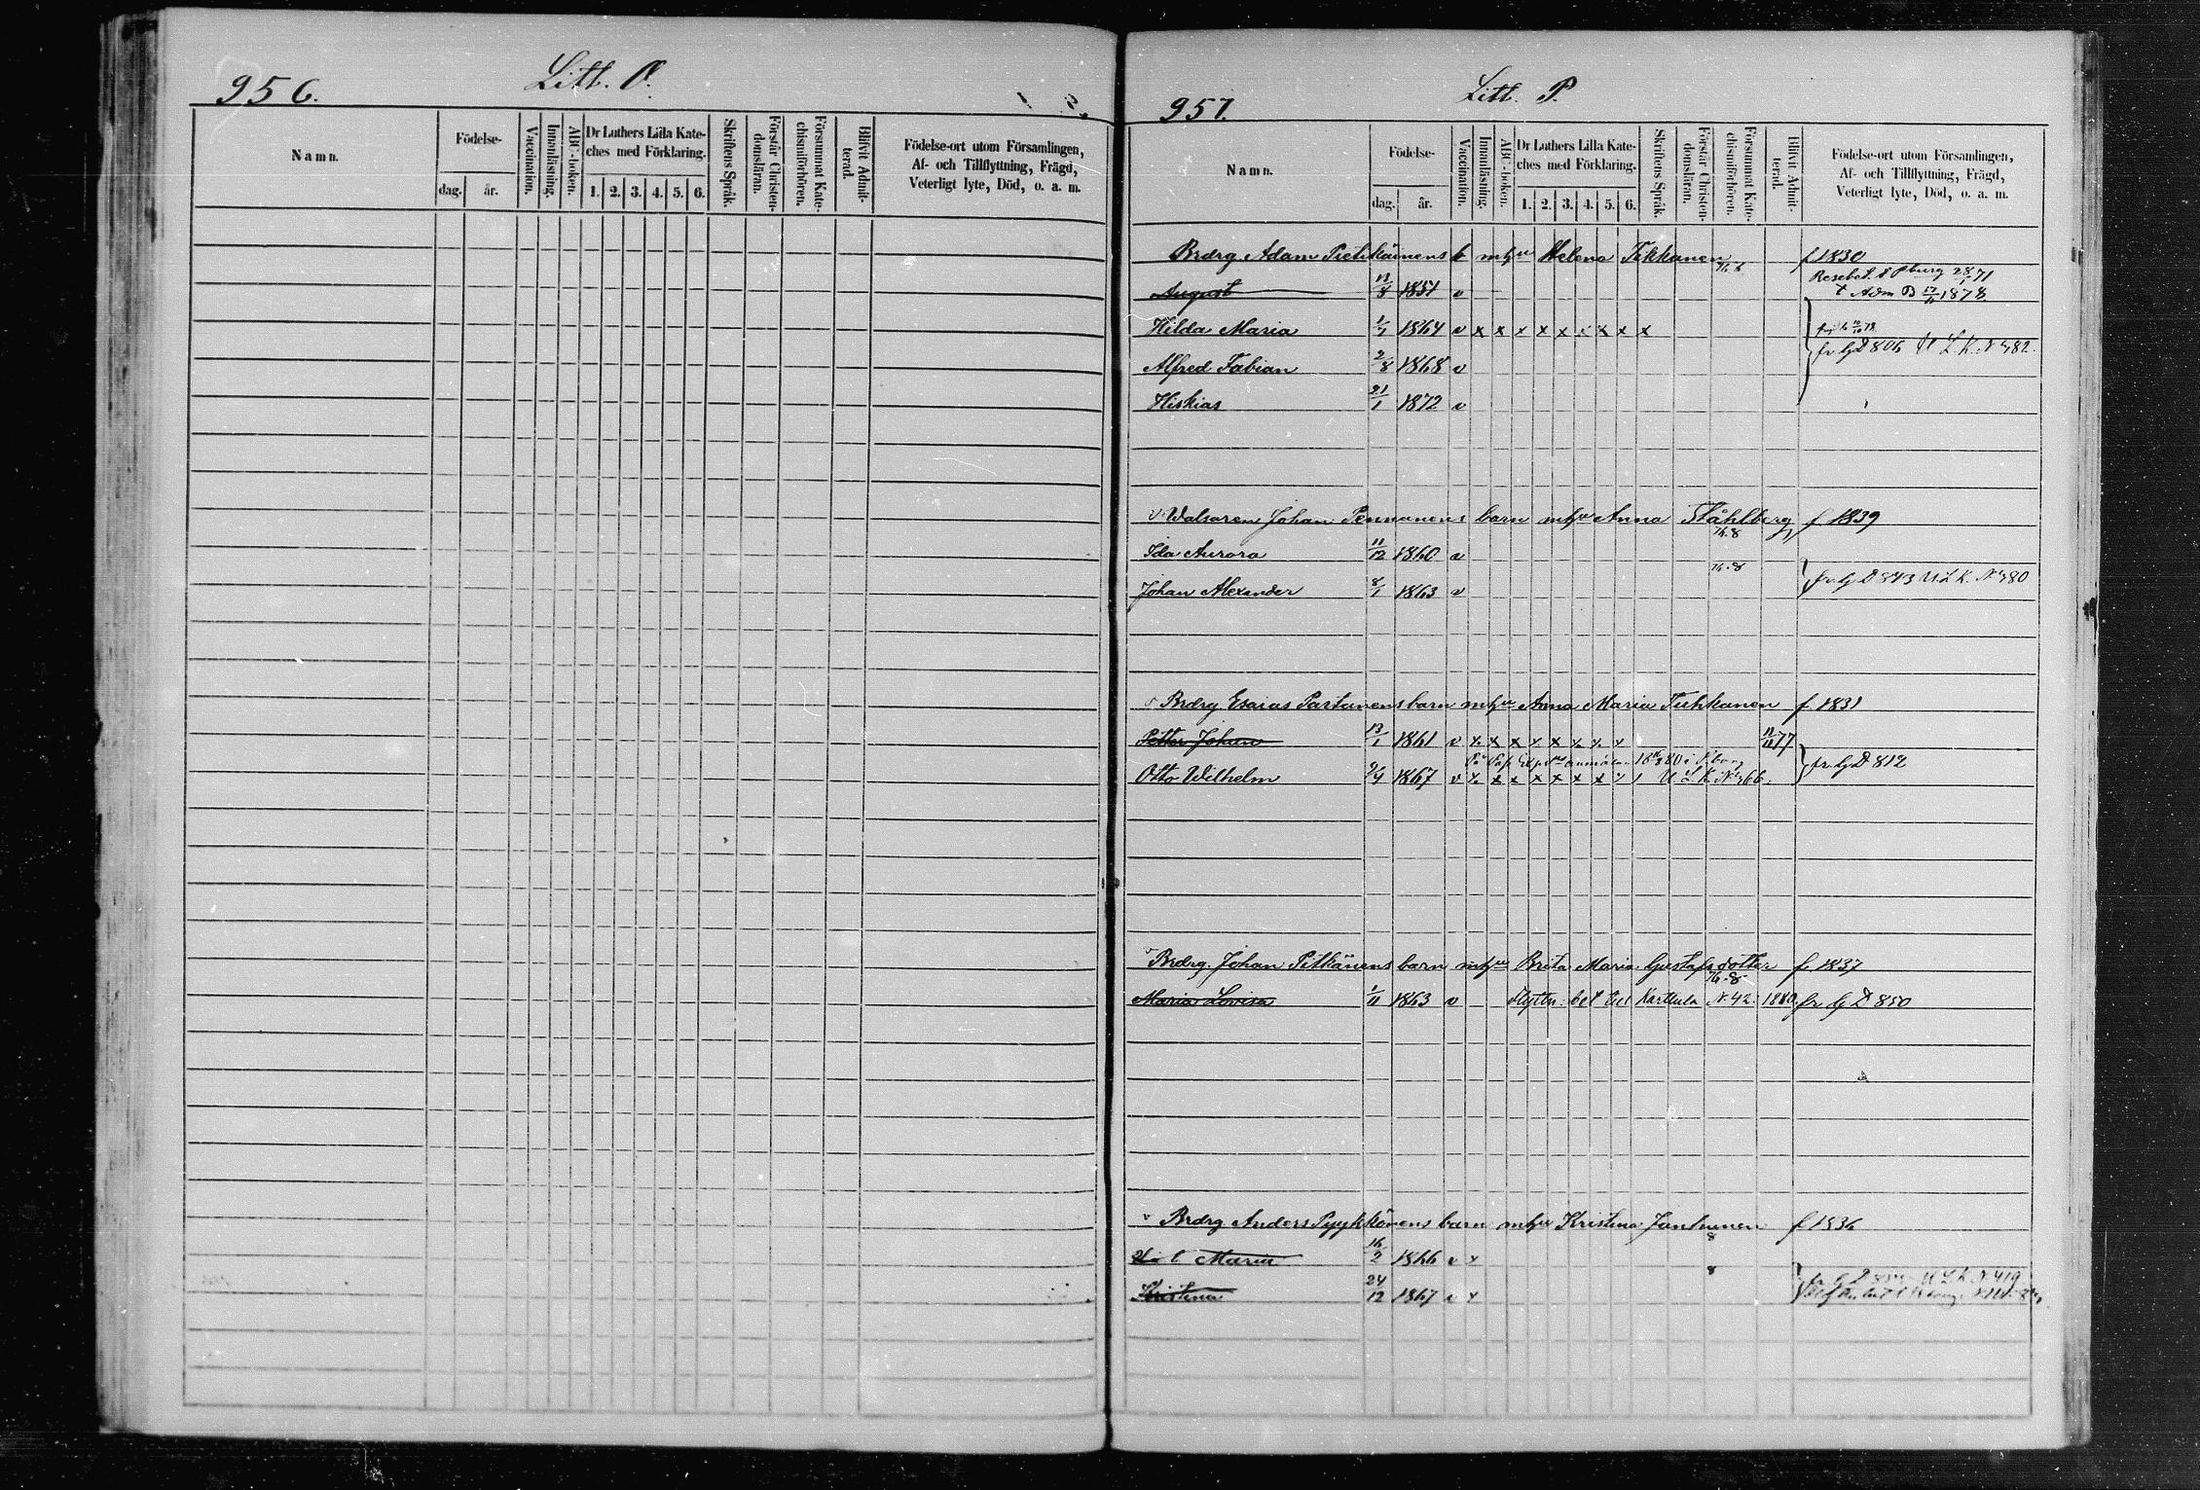 956.
Litt. O.
Namn.
Födelse-
dag.
år.
Vaccination.
Innanläsning.
ABC-boken.
Dr Luthers Lilla Kate-
ches med Förklaring.
1. 2. 3. 4. 5. 6.
Skriftens Språk.
Förstår Christen-
domsläran.
Försummat Kate-
chismiförhören.
Blifvit Admit-
terad.
Födelse-ort utom Församlingen,
Af- och Tillflyttning, Frägd,
Veterligt lyte, Död, o. a. m.
957.
Litt. P.
Namn.
Födelse-
dag.
år.
Vaccination.
Innanläsning.
ABC-boken.
Dr Luthers Lilla Kate-
ches med Förklaring.
1. 2. 3. 4. 5. 6.
Skriftens Språk.
Förstår Christen-
domsläran.
Försummat Kate-
chismiförhören.
Blifvit Admit-
terad.
Födelse-ort utom Församlingen,
Af- och Tillflyttning, Frägd,
Veterligt lyte, Död, o. a. m.
Brdrg Adam Pietikäinens b mhu Helena Tikkanen f 1830
August 1851 v
Hilda Maria 1/7 1864 v x x x x x x x x x
fr lj D 806 U L K N 482
Alfred Fabian 2/8 1868 v
Hiskias 21/1 1872 v
Johan Pennanens barn mhu Anna Ståhlberg f 1839
Ida Aurora 11/12 1860 v
Johan Alexander 8/1 1863 v fr lj D 843 U L K. N 480
Brdrg Esaias Partanens barn mhu Anna Maria Tuhkanen f 1831
Petter Johan 13/1 1861 v x x x x x x x x
fr lj D 812
Otto Wilhelm 9/4 1867 v x x x x x x x x U L K N 466.
Brdrg. Johan Pitkänens barn mhu Brita Maria Gustafsdotter f 1837
Maria Lovisa 1/11 1863 v Flyttn. bet till Karttula N. 42. 1880. fr lj D 850
Brdrg Anders Pyykkönens barn mhu Kristina Jantunen f 1836
Maria 16/2 1866 v x
Kristina 24/12 1867 v x